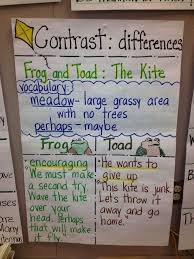 Contrast: differences
Frog and Toad: The Kite
vocabulary:
meadow- large grassy area
with no trees
perhaps- maybe
Frog
Toad
encouraging
"We must make
a second try.
Wave the Kite
over your
head. Perhaps
that will make
it fly."
He wants to
give up
"This kite is junk.
Let's throw it
away and go
home."